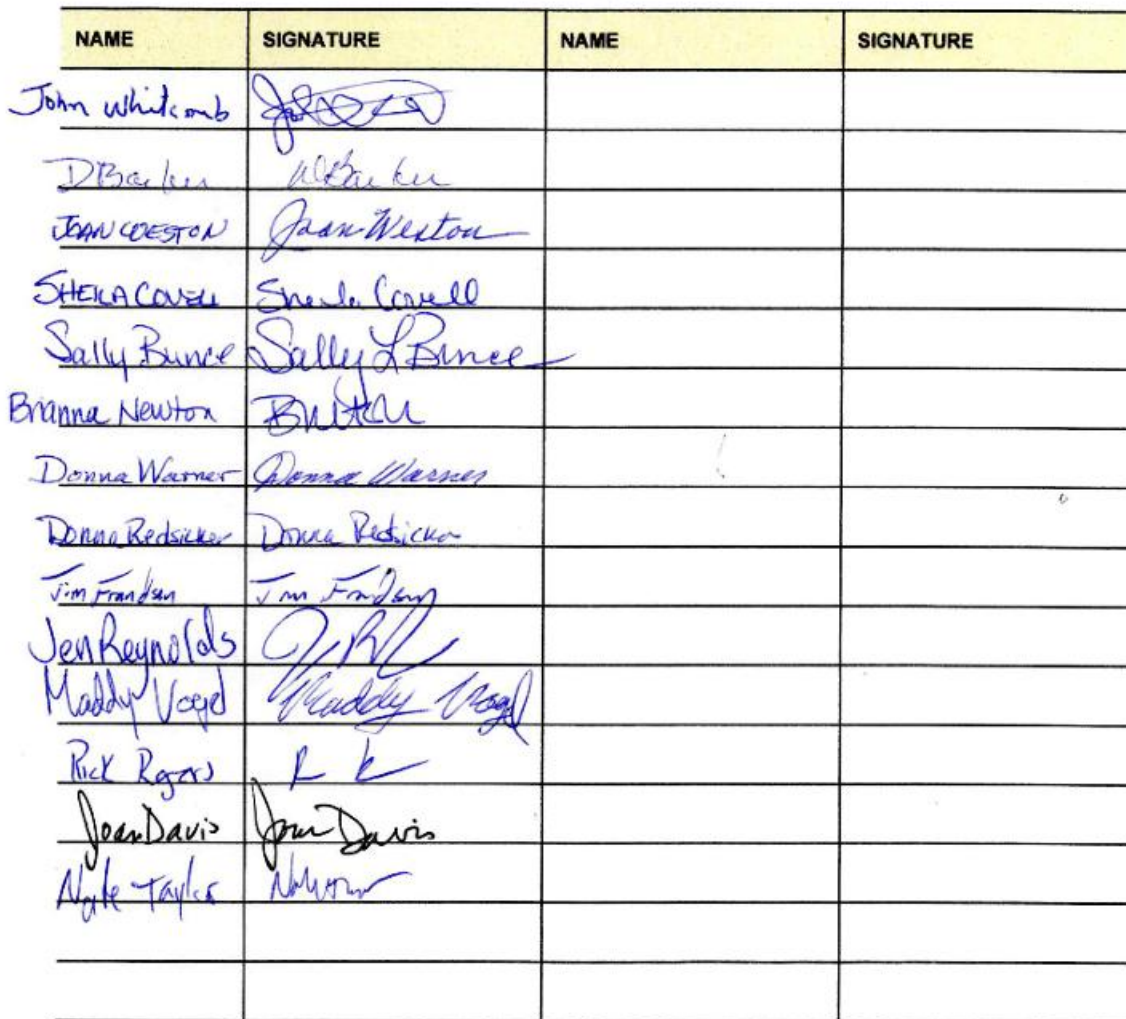 NAME SIGNATURE NAME SIGNATURE
John Whitcomb
D Barker D Barker
JOAN WESTON Joan Weston
SHEILA COVELL Sheila Covell
Sally Bunce Sally L Bunce
Brianna Newton
Donna Warner Donna Warner
Donna Redsicker Donna Redsicker
Jim Frandsen Jim Frandsen
Jen Reynolds
Maddy Vogel Maddy Vogel
Rick Rogers
Joan Davis Joan Davis
Nate Taylor